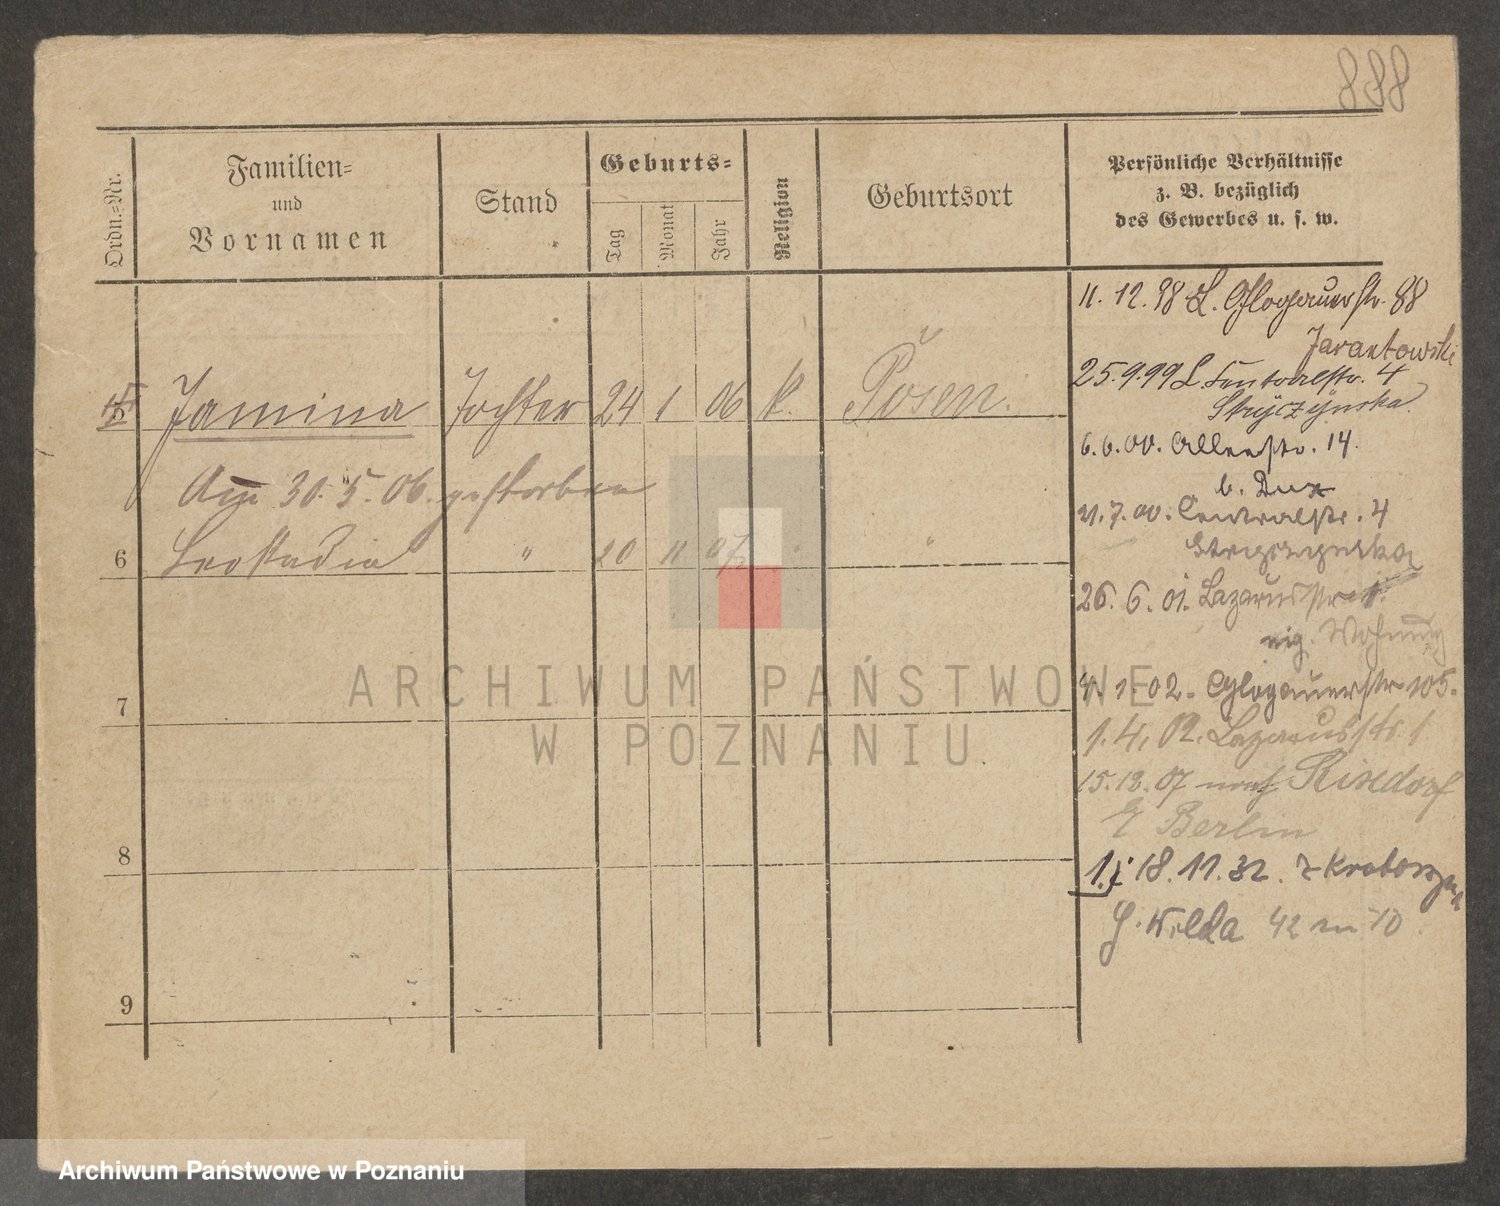 888
Ordn.=Nr.
Familien=
und
Vornamen
Stand
Geburts=
Tag
Monat
Jahr
Religion
Geburtsort
Persönliche Verhältnisse
z. B. bezüglich
des Gewerbes u. s. w.
11. 12. 98 L. Glogauerstr. 88
Jarantowski
25. 9. 99 L. Centralstr. 4
Stryczynska
Janina Tochter 24 1 06 k. Posen
6. 6. 00. Alleestr. 14.
b. Dux
Am 30. 5. 06. gestorben
21. 7. 00. Centralstr. 4
6 Leokadia " 20 11 07 " "
26. 6. 01. Lazarusstr.
eig. Wohnung
4. 1. 02. Glogauerstr. 105.
7
1. 4. 02. Lazarusstr. 1
15. 12. 07 nach Rixdorf
Berlin
8
18. 11. 32.
G. Wilda 42 m 10
9
ARCHIWUM PAŃSTWOWE
W POZNANIU
Archiwum Państwowe w Poznaniu